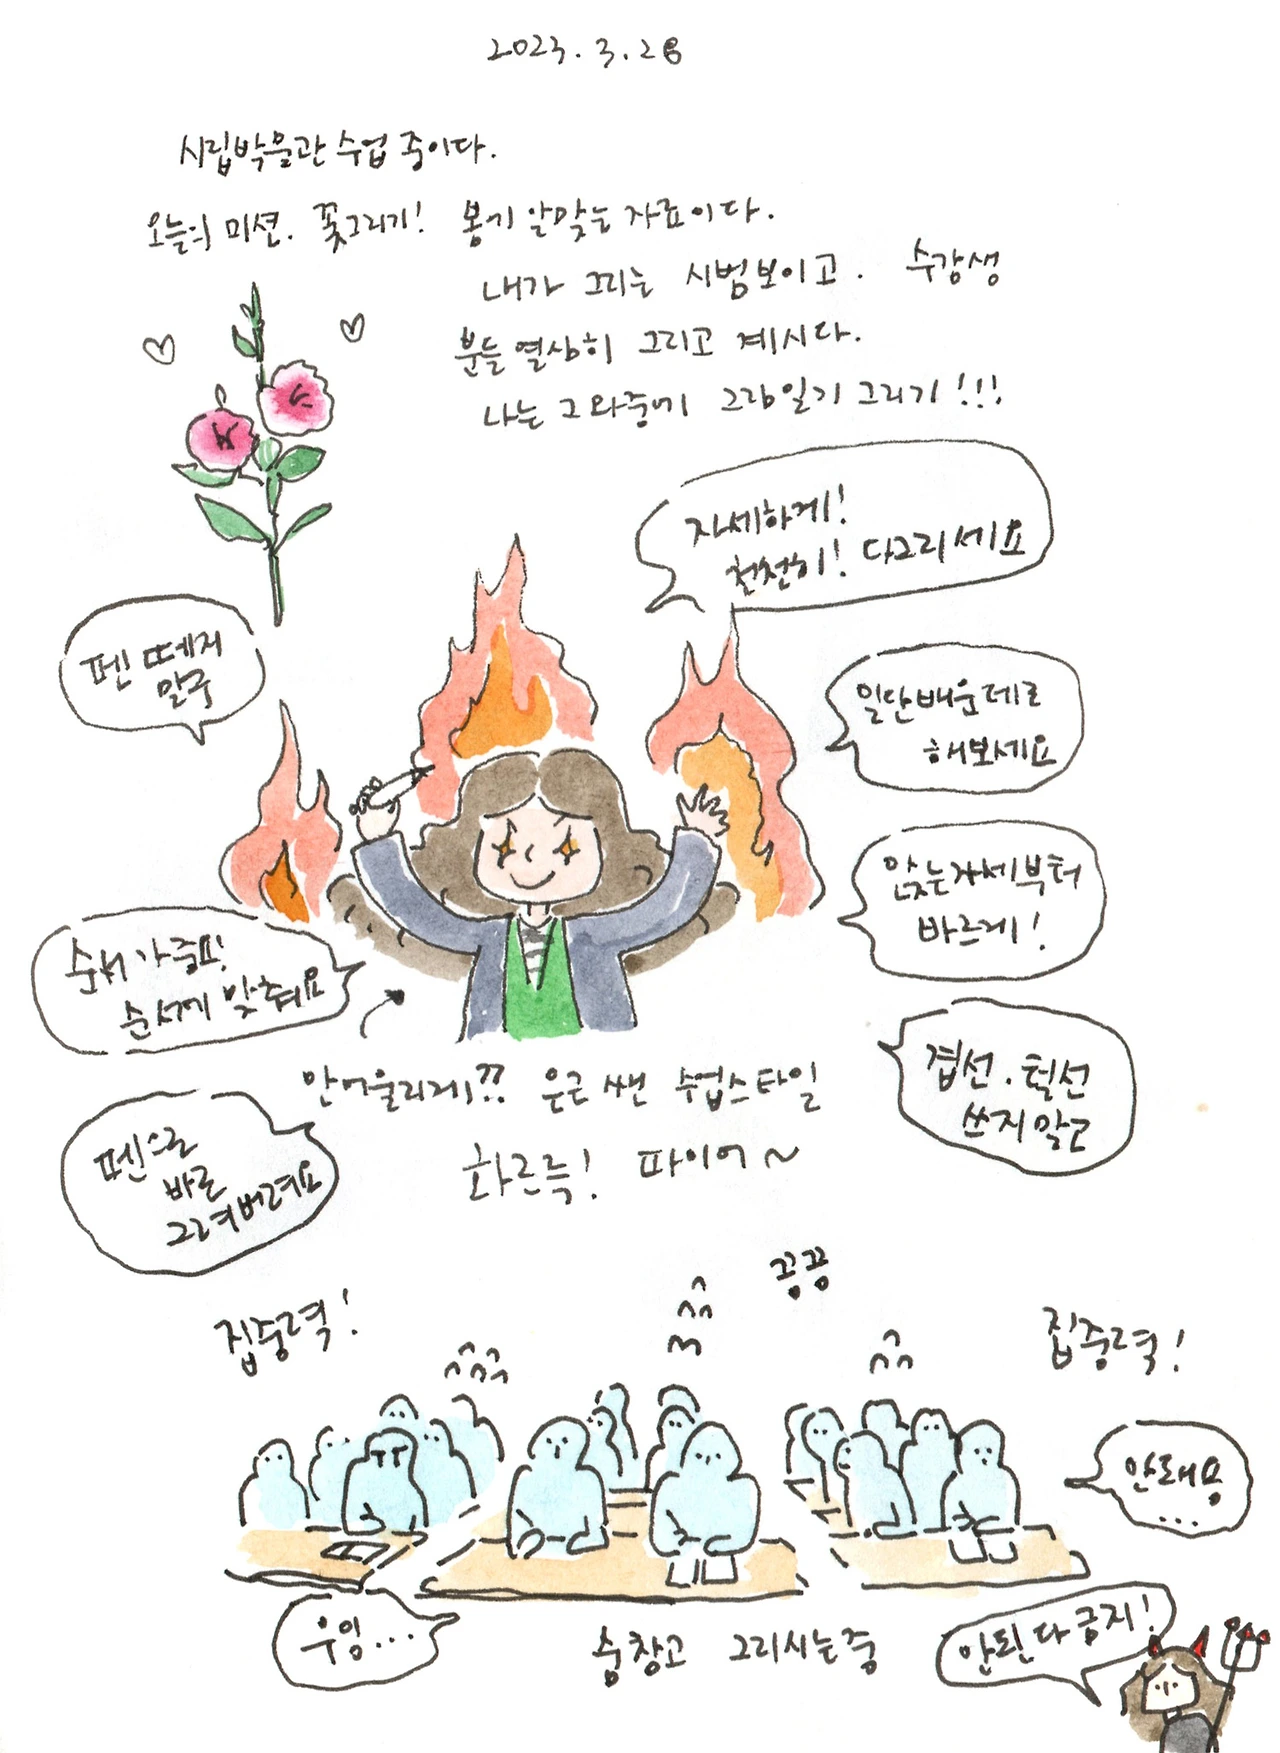 2023. 3. 28
시립박물관 수업 중이다.
오늘의 미션. 꽃그리기! 봄기 알맞는 자료이다.
내가 그리는 시범보이고. 수강생
분들 열심히 그리고 계시다.
나는 그 와중에 그림일기 그리기!!!
자세하게!
천천히! 다그리세요
펜 떼지
말구
일단배운데로
해보세요
앉는자세부터
바르게!
순서가 중요!
순서에 맞춰요
안어울리게?? 은근 쎈 수업스타일
화르륵! 파이어~
겹선. 털선
쓰지말고
펜으로
바로
그려버려요
끙끙
집중력!
집중력!
안돼용
...
우잉...
숨참고 그리시는중
안된다금지!